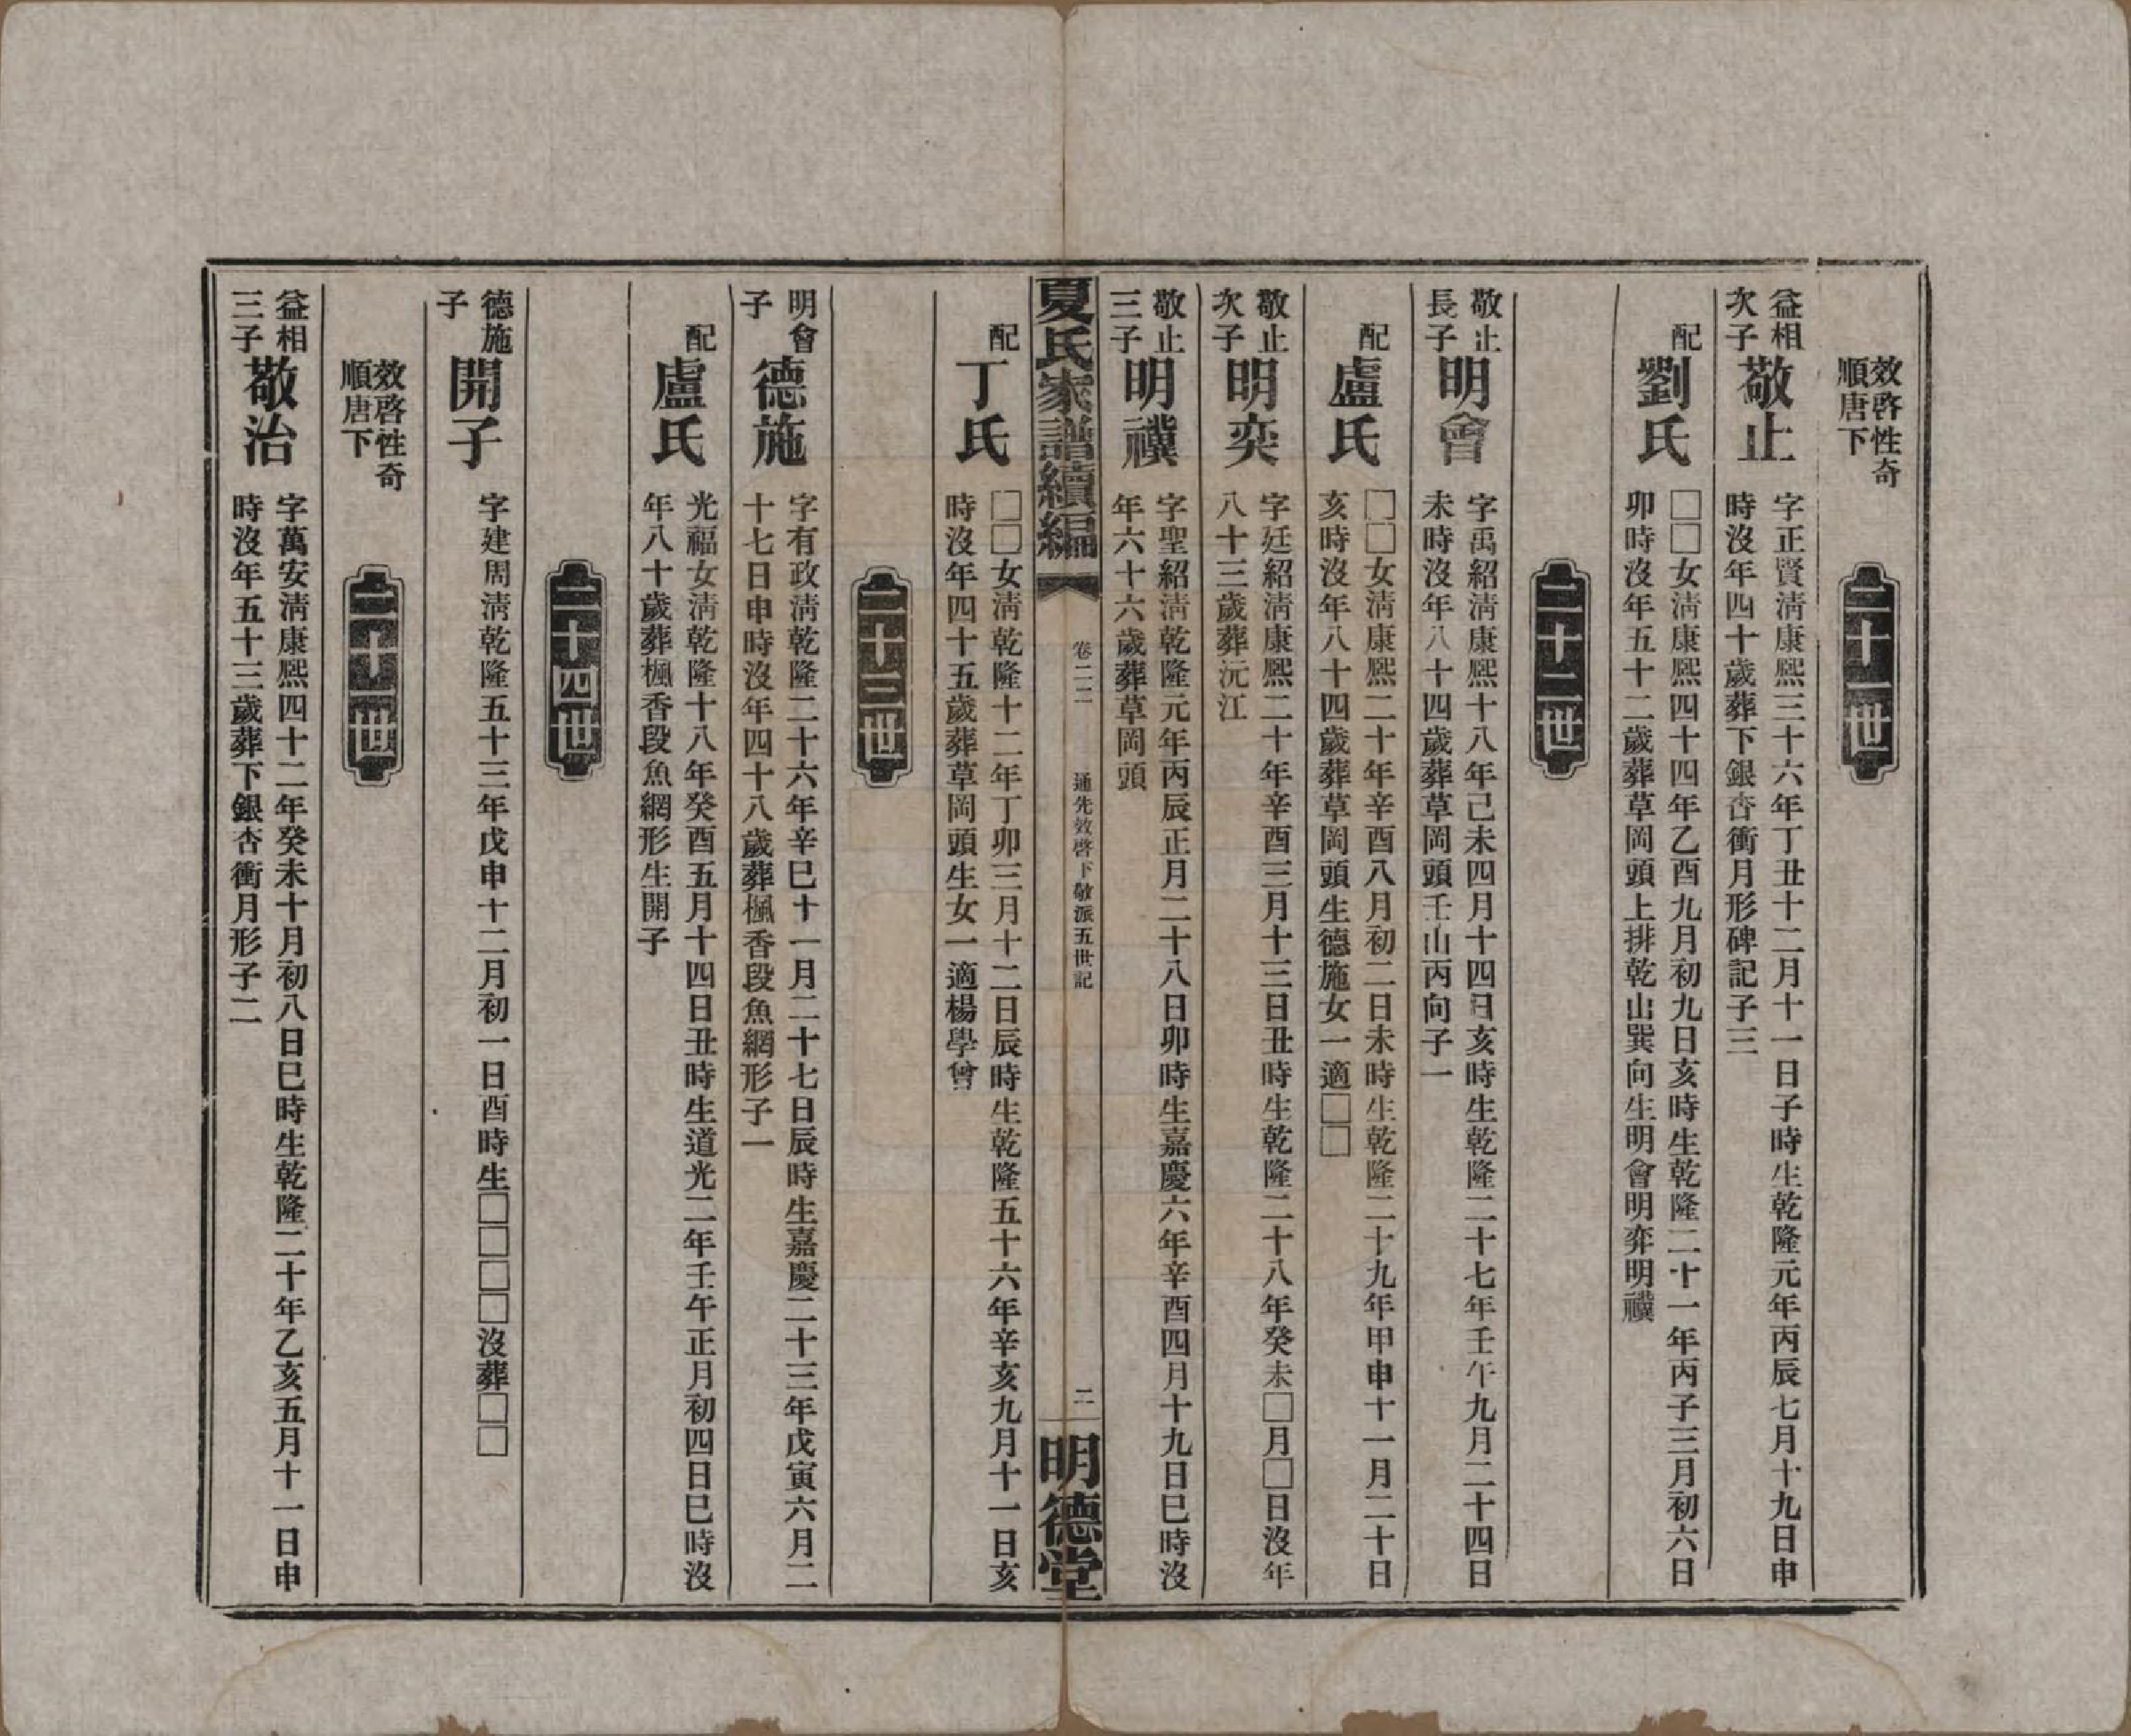 效啓性奇
順唐下
二十一世
益相
次子
敬止
字正賢淸康熙三十六年丁丑十二月十一日子時生乾隆元年丙辰七月十九日申
時沒年四十歲葬下銀杏衝月形碑記子三
配
劉氏
□□女淸康熙四十四年乙酉九月初九日亥時生乾隆二十一年丙子三月初六日
卯時沒年五十二歲葬草岡頭上排乾山巽向生明會明弈明禩
二十二世
敬止
長子
明會
字禹紹淸康熙十八年己未四月十四日亥時生乾隆二十七年壬午九月二十四日
未時沒年八十四歲葬草岡頭壬山丙向子一
配
盧氏
□□女淸康熙二十年辛酉八月初二日未時生乾隆二十九年甲申十一月二十日
亥時沒年八十四歲葬草岡頭生德施女一適□□
敬止
次子
明奕
字廷紹淸康熙二十年辛酉三月十三日丑時生乾隆二十八年癸未□月□日沒年
八十三歲葬沅江
敬止
三子
明禩
字聖紹淸乾隆元年丙辰正月二十八日卯時生嘉慶六年辛酉四月十九日巳時沒
年六十六歲葬草岡頭
夏氏家譜續編
卷二二
通先效啓下敬派五世記
二
明德堂
配
丁氏
□□女淸乾隆十二年丁卯三月十二日辰時生乾隆五十六年辛亥九月十一日亥
時沒年四十五歲葬草岡頭生女一適楊學曾
二十三世
明會
子
德施
字有政淸乾隆二十六年辛巳十一月二十七日辰時生嘉慶二十三年戊寅六月二
十七日申時沒年四十八歲葬楓香段魚網形子一
配
盧氏
光福女淸乾隆十八年癸酉五月十四日丑時生道光二年壬午正月初四日巳時沒
年八十歲葬楓香段魚網形生開子
二十四世
德施
子
開子
字建周淸乾隆五十三年戊申十二月初一日酉時生□□□□沒葬□□
效啓性奇
順唐下
二十一世
益相
三子
敬治
字萬安淸康熙四十二年癸未十月初八日巳時生乾隆二十年乙亥五月十一日申
時沒年五十三歲葬下銀杏衝月形子二